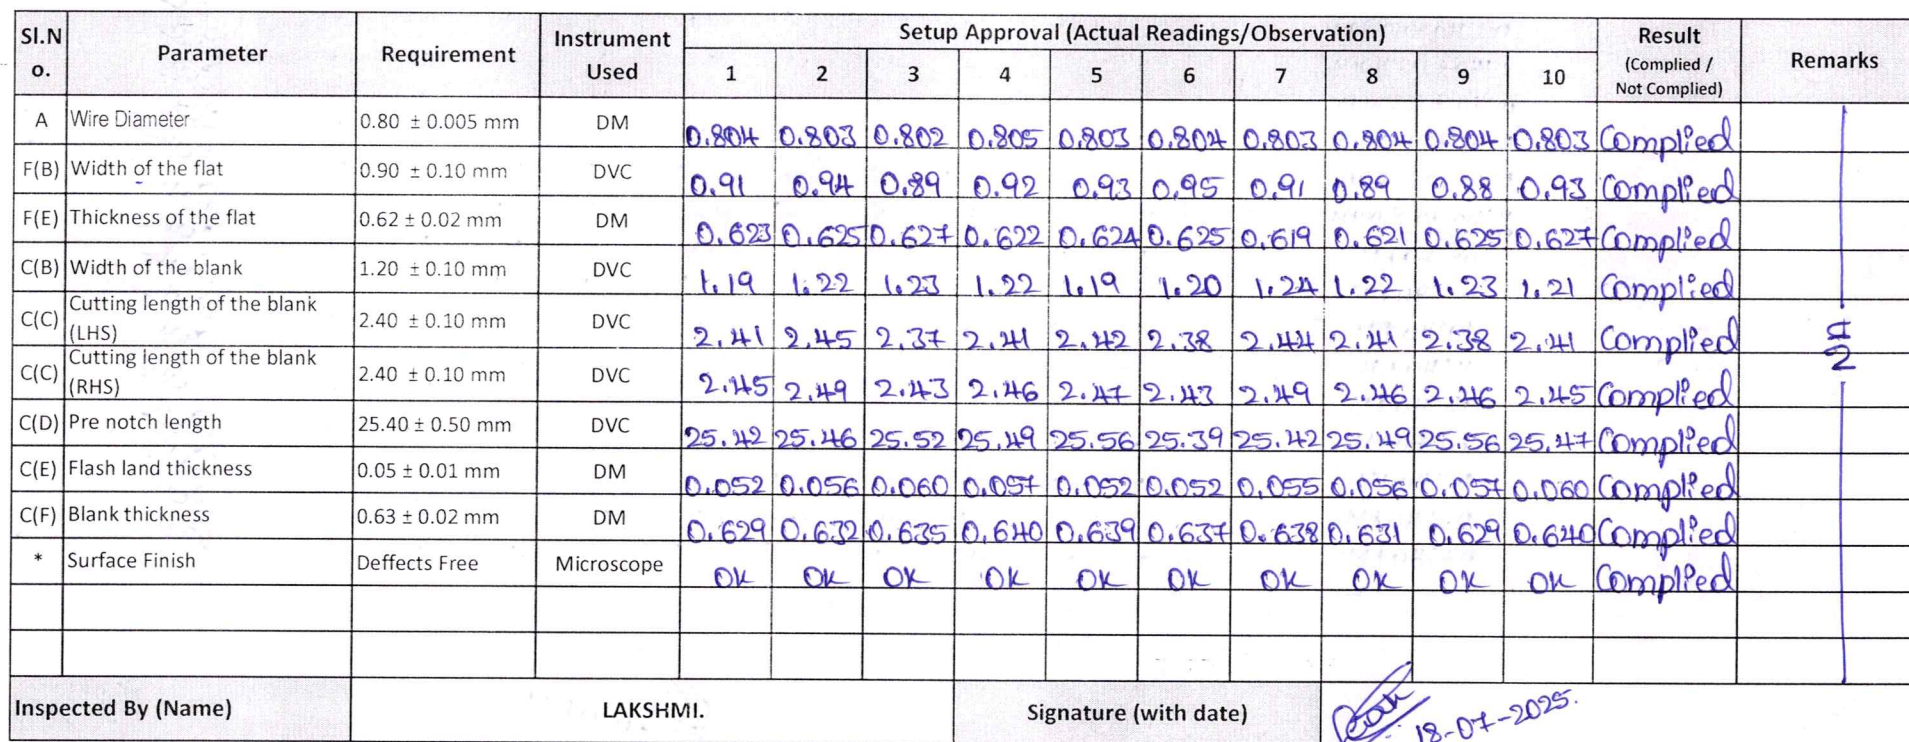 Sl.No. Parameter Requirement Instrument Used Setup Approval (Actual Readings/Observation) Result (Complied / Not Complied) Remarks
1 2 3 4 5 6 7 8 9 10
A Wire Diameter 0.80 ± 0.005 mm DM 0.804 0.803 0.802 0.805 0.803 0.804 0.803 0.804 0.804 0.803 Complied
F(B) Width of the flat 0.90 ± 0.10 mm DVC 0.91 0.94 0.89 0.92 0.93 0.95 0.91 0.89 0.88 0.93 Complied
F(E) Thickness of the flat 0.62 ± 0.02 mm DM 0.623 0.625 0.627 0.622 0.624 0.625 0.619 0.621 0.625 0.627 Complied
C(B) Width of the blank 1.20 ± 0.10 mm DVC 1.19 1.22 1.23 1.22 1.19 1.20 1.24 1.22 1.23 1.21 Complied
C(C) Cutting length of the blank (LHS) 2.40 ± 0.10 mm DVC 2.41 2.45 2.37 2.41 2.42 2.38 2.44 2.41 2.38 2.41 Complied
C(C) Cutting length of the blank (RHS) 2.40 ± 0.10 mm DVC 2.45 2.49 2.43 2.46 2.47 2.43 2.49 2.46 2.46 2.45 Complied
C(D) Pre notch length 25.40 ± 0.50 mm DVC 25.42 25.46 25.52 25.49 25.56 25.39 25.42 25.49 25.56 25.47 Complied
C(E) Flash land thickness 0.05 ± 0.01 mm DM 0.052 0.056 0.060 0.057 0.052 0.052 0.055 0.056 0.057 0.060 Complied
C(F) Blank thickness 0.63 ± 0.02 mm DM 0.629 0.632 0.635 0.640 0.639 0.637 0.638 0.631 0.629 0.640 Complied
* Surface Finish Deffects Free Microscope OK OK OK OK OK OK OK OK OK OK Complied
Inspected By (Name) LAKSHMI. Signature (with date) 18-07-2025.